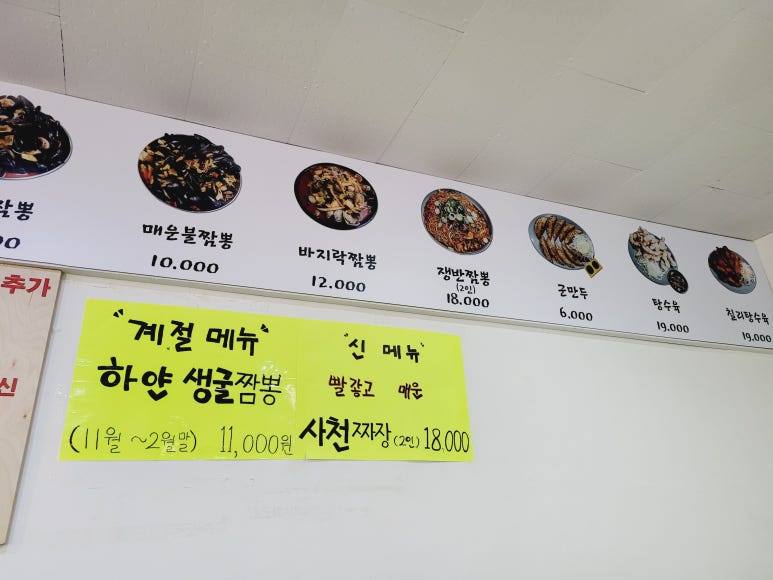 짬뽕
매운불짬뽕
10.000
바지락짬뽕
12.000
쟁반짬뽕
(2인)
18.000
군만두
6.000
탕수육
19.000
칠리탕수육
19.000
추가
신
"계절 메뉴"
하얀 생굴짬뽕
(11월 ~2월말) 11,000원
"신 메뉴"
빨갛고 매운
사천짜장(2인) 18.000